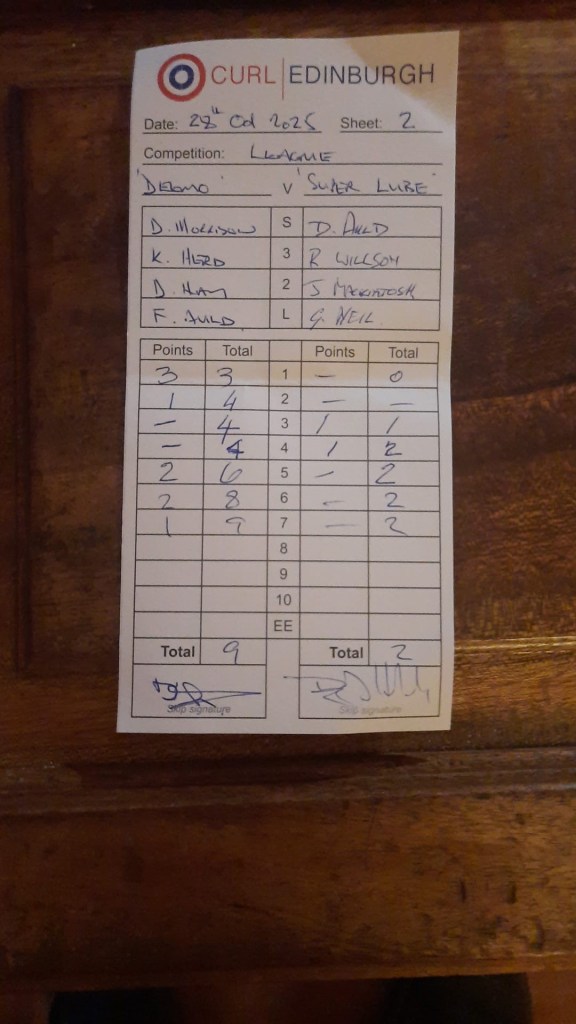 CURL | EDINBURGH
Date: 28th Oct 2025 Sheet: 2
Competition: LEAGUE
'DELMO' V 'SUPER LUBE'
D. MORRISON S D. AULD
K. HERD 3 R WILLSON
D. HAY 2 J MACKINTOSH
F. AULD L G. NEIL
Points Total Points Total
3 3 1 — 0
1 4 2 — —
— 4 3 1 1
— 4 4 1 2
2 6 5 — 2
2 8 6 — 2
1 9 7 — 2
8
9
10
EE
Total 9 Total 2
Skip signature Skip signature